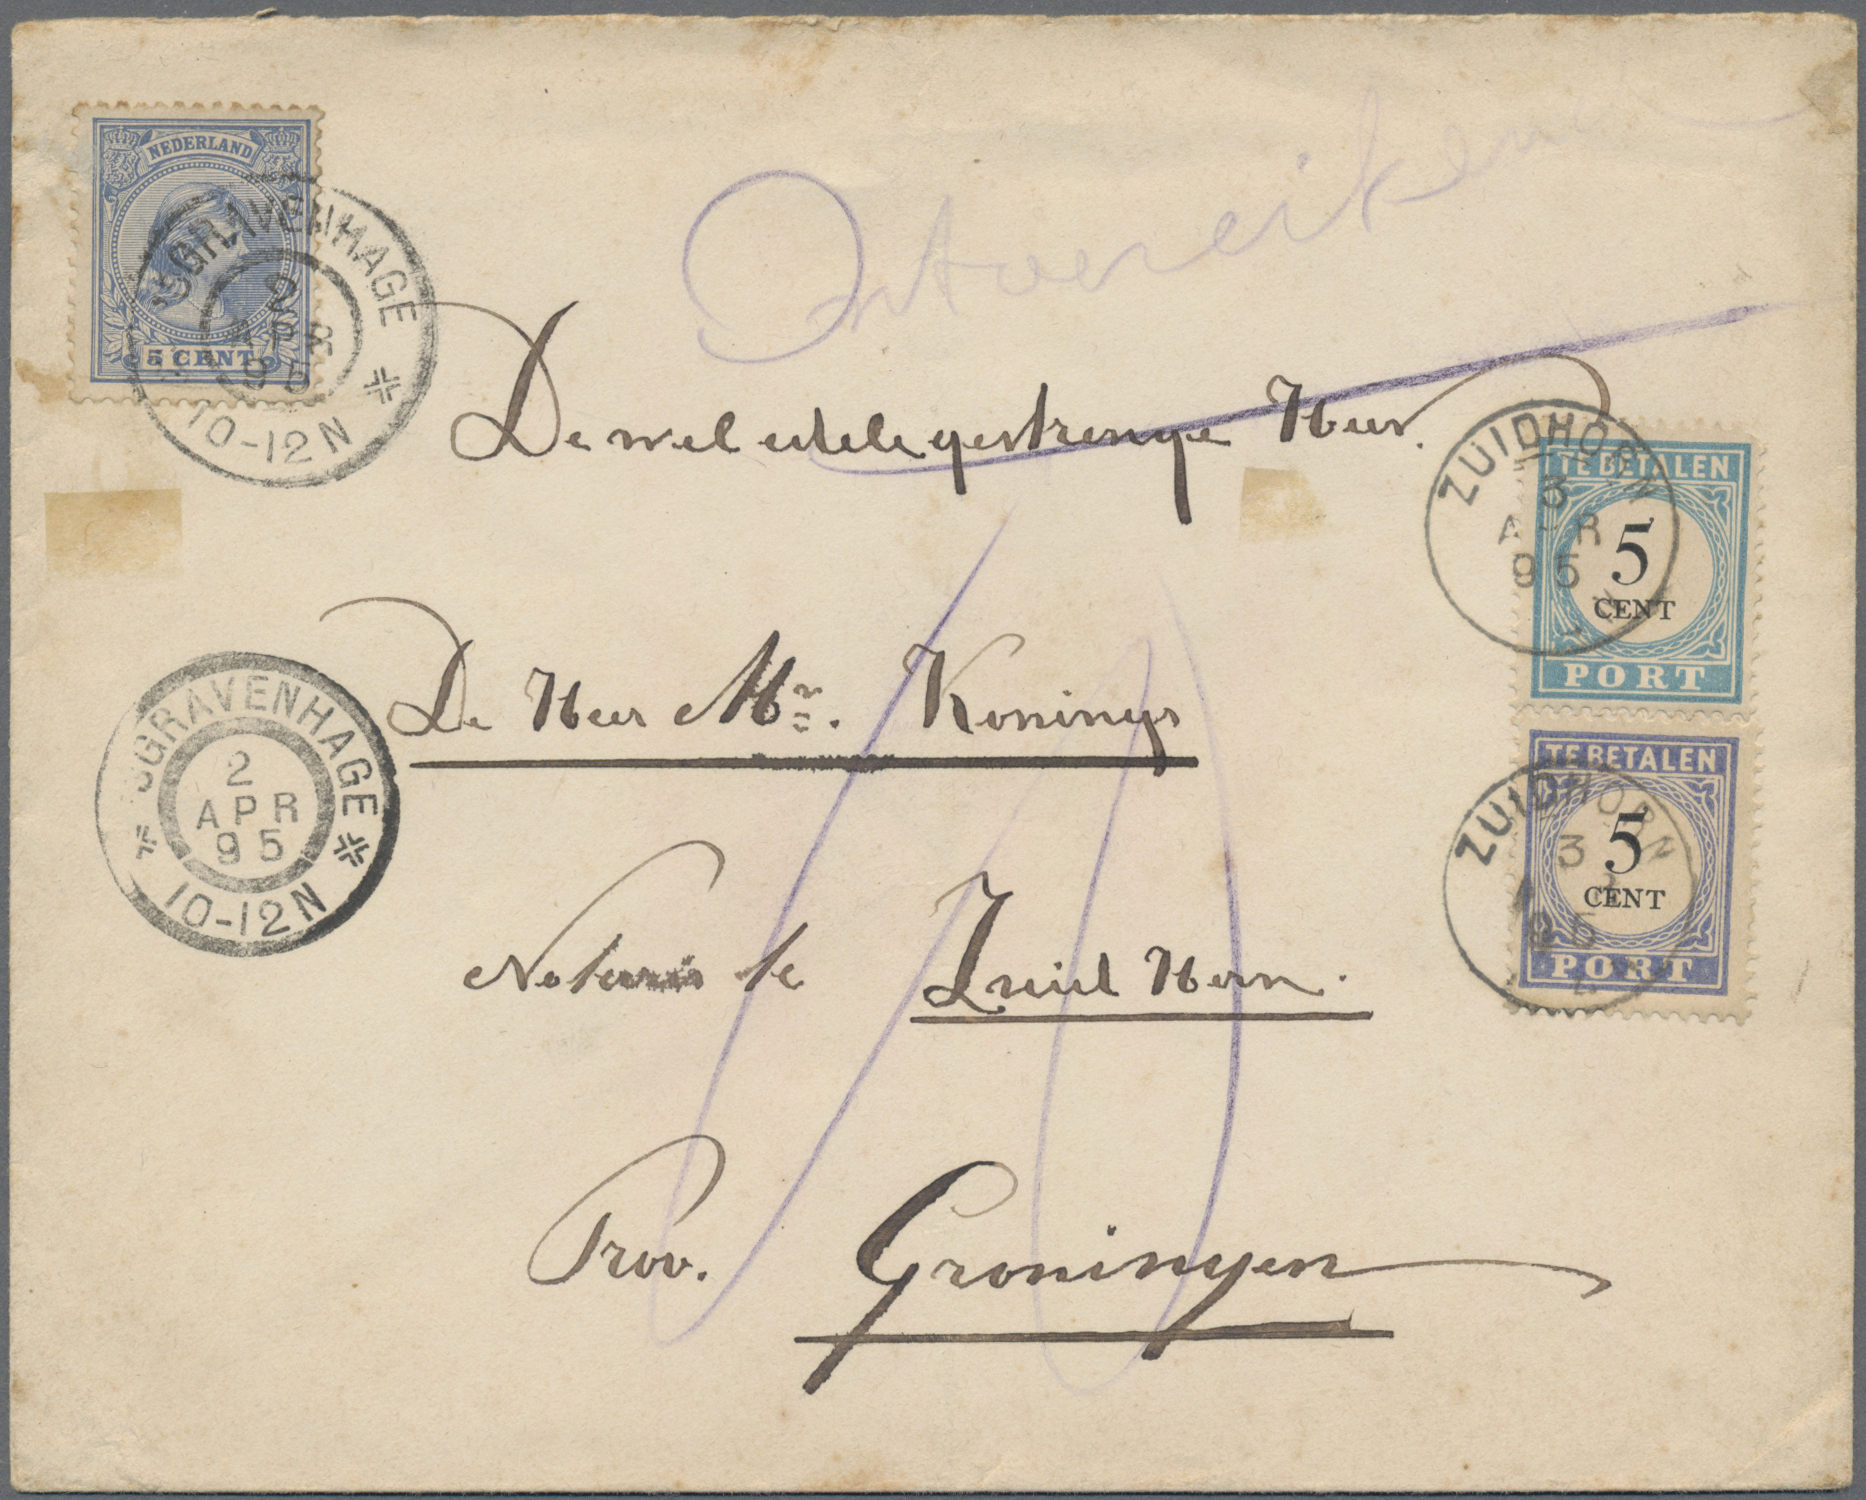 NEDERLAND
5 CENT
'SGRAVENHAGE
2 APR 95
10-12N
Ontoereikend
De wel edele gestrenge Heer.
De Heer Mr. Konings
Notaris te Zuid Horn.
Prov. Groningen
'SGRAVENHAGE
2
APR
95
10-12N
TE BETALEN
5
CENT
PORT
ZUIDHORN
3
APR
95
TE BETALEN
5
CENT
PORT
ZUIDHORN
3
95
10